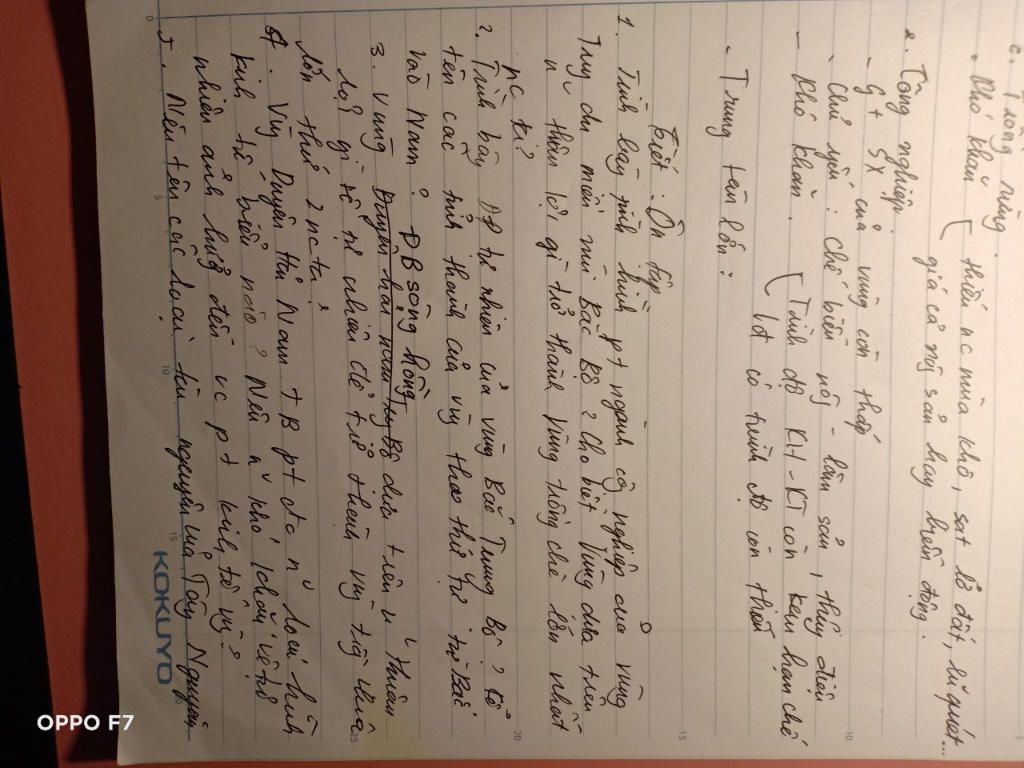 c. Trồng rừng
- Khó khăn { thiếu nc mùa khô, sạt lở đất, lũ quét...
giá cả nôg sản hay biến động.
2. Công nghiệp
- Gt SX của vùng còn thấp
- Chủ yếu: chế biến nôg - lâm sản, thủy điện
- Khó khăn. { Trình độ KH-KT còn kém hạn chế
Lđ có trình độ còn thiếu
- Trung tâm lớn:
Tiết: Ôn tập
1. Trình bày tình hình pt ngành côg nghiệp của vùng
Trug du miền núi Bắc Bộ? Cho biết Vùng dựa trên
n~ thuận lợi gì trở thành vùng trồng chè lớn nhất
nc ta?
2. Trình bày ĐP tự nhiên của vùng Bắc Trung Bộ? kể
tên các tỉnh thành của vùg theo thứ tự từ Bắc
vào Nam? ĐB sông hồng
3. Vùng Duyên hải Nam Trug Bộ dựa trên n~ thuận
lợi gì về tự nhiên để trở thành vùg
lớn thứ 2 nc ta?
4. Vùg Duyên Hải Nam TB pt đc n~ loại hình
kinh tế biển nào? Nêu n~ khó khăn về tự
nhiên ảnh hưởg đến vc pt kinh tế vùg?
5. Nêu tên các loại tài nguyên của Tây Nguyên
KOKUYO
OPPO F7
0
5
10
15
5
10
15
20
25